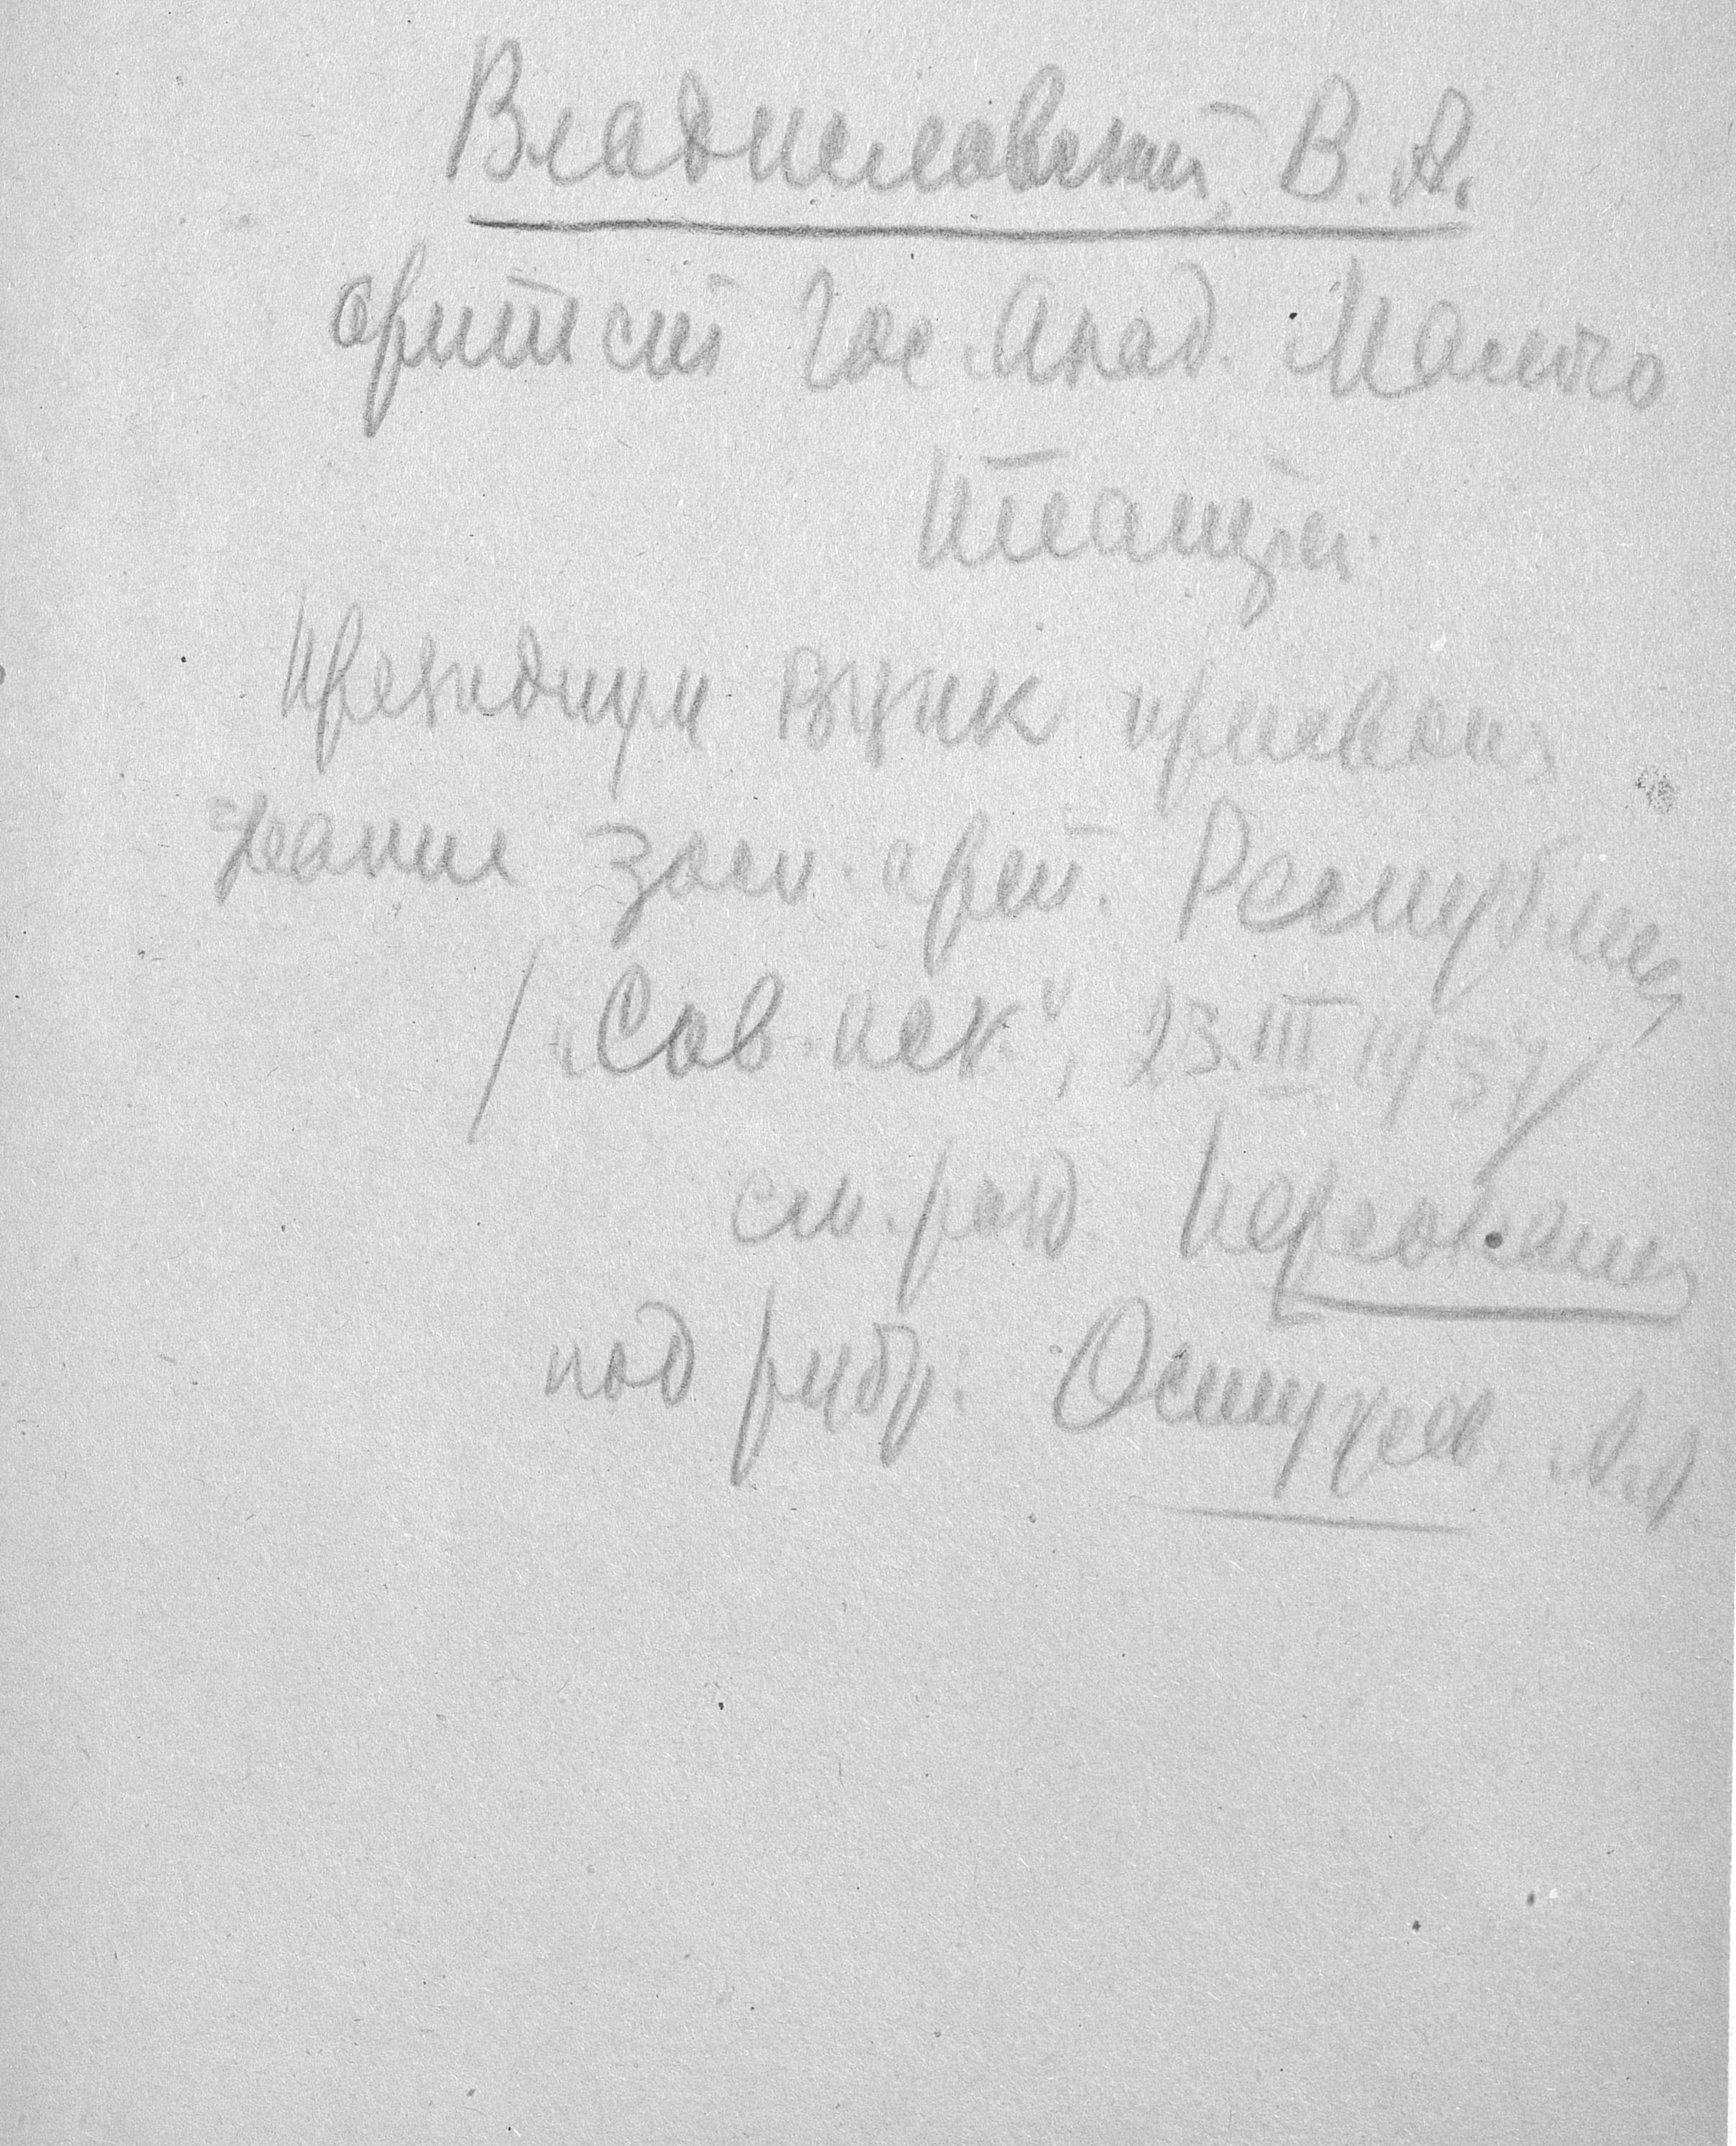 Владиславский, В. А.
артист Гос. Акад. Малого
театра.
Президиум ВЦИК присвоил
звание засл. арт. Республики
/"Сов. иск.", 23.III 1937/
см. разд. Персоналия
под рубр: Остужев, А.А